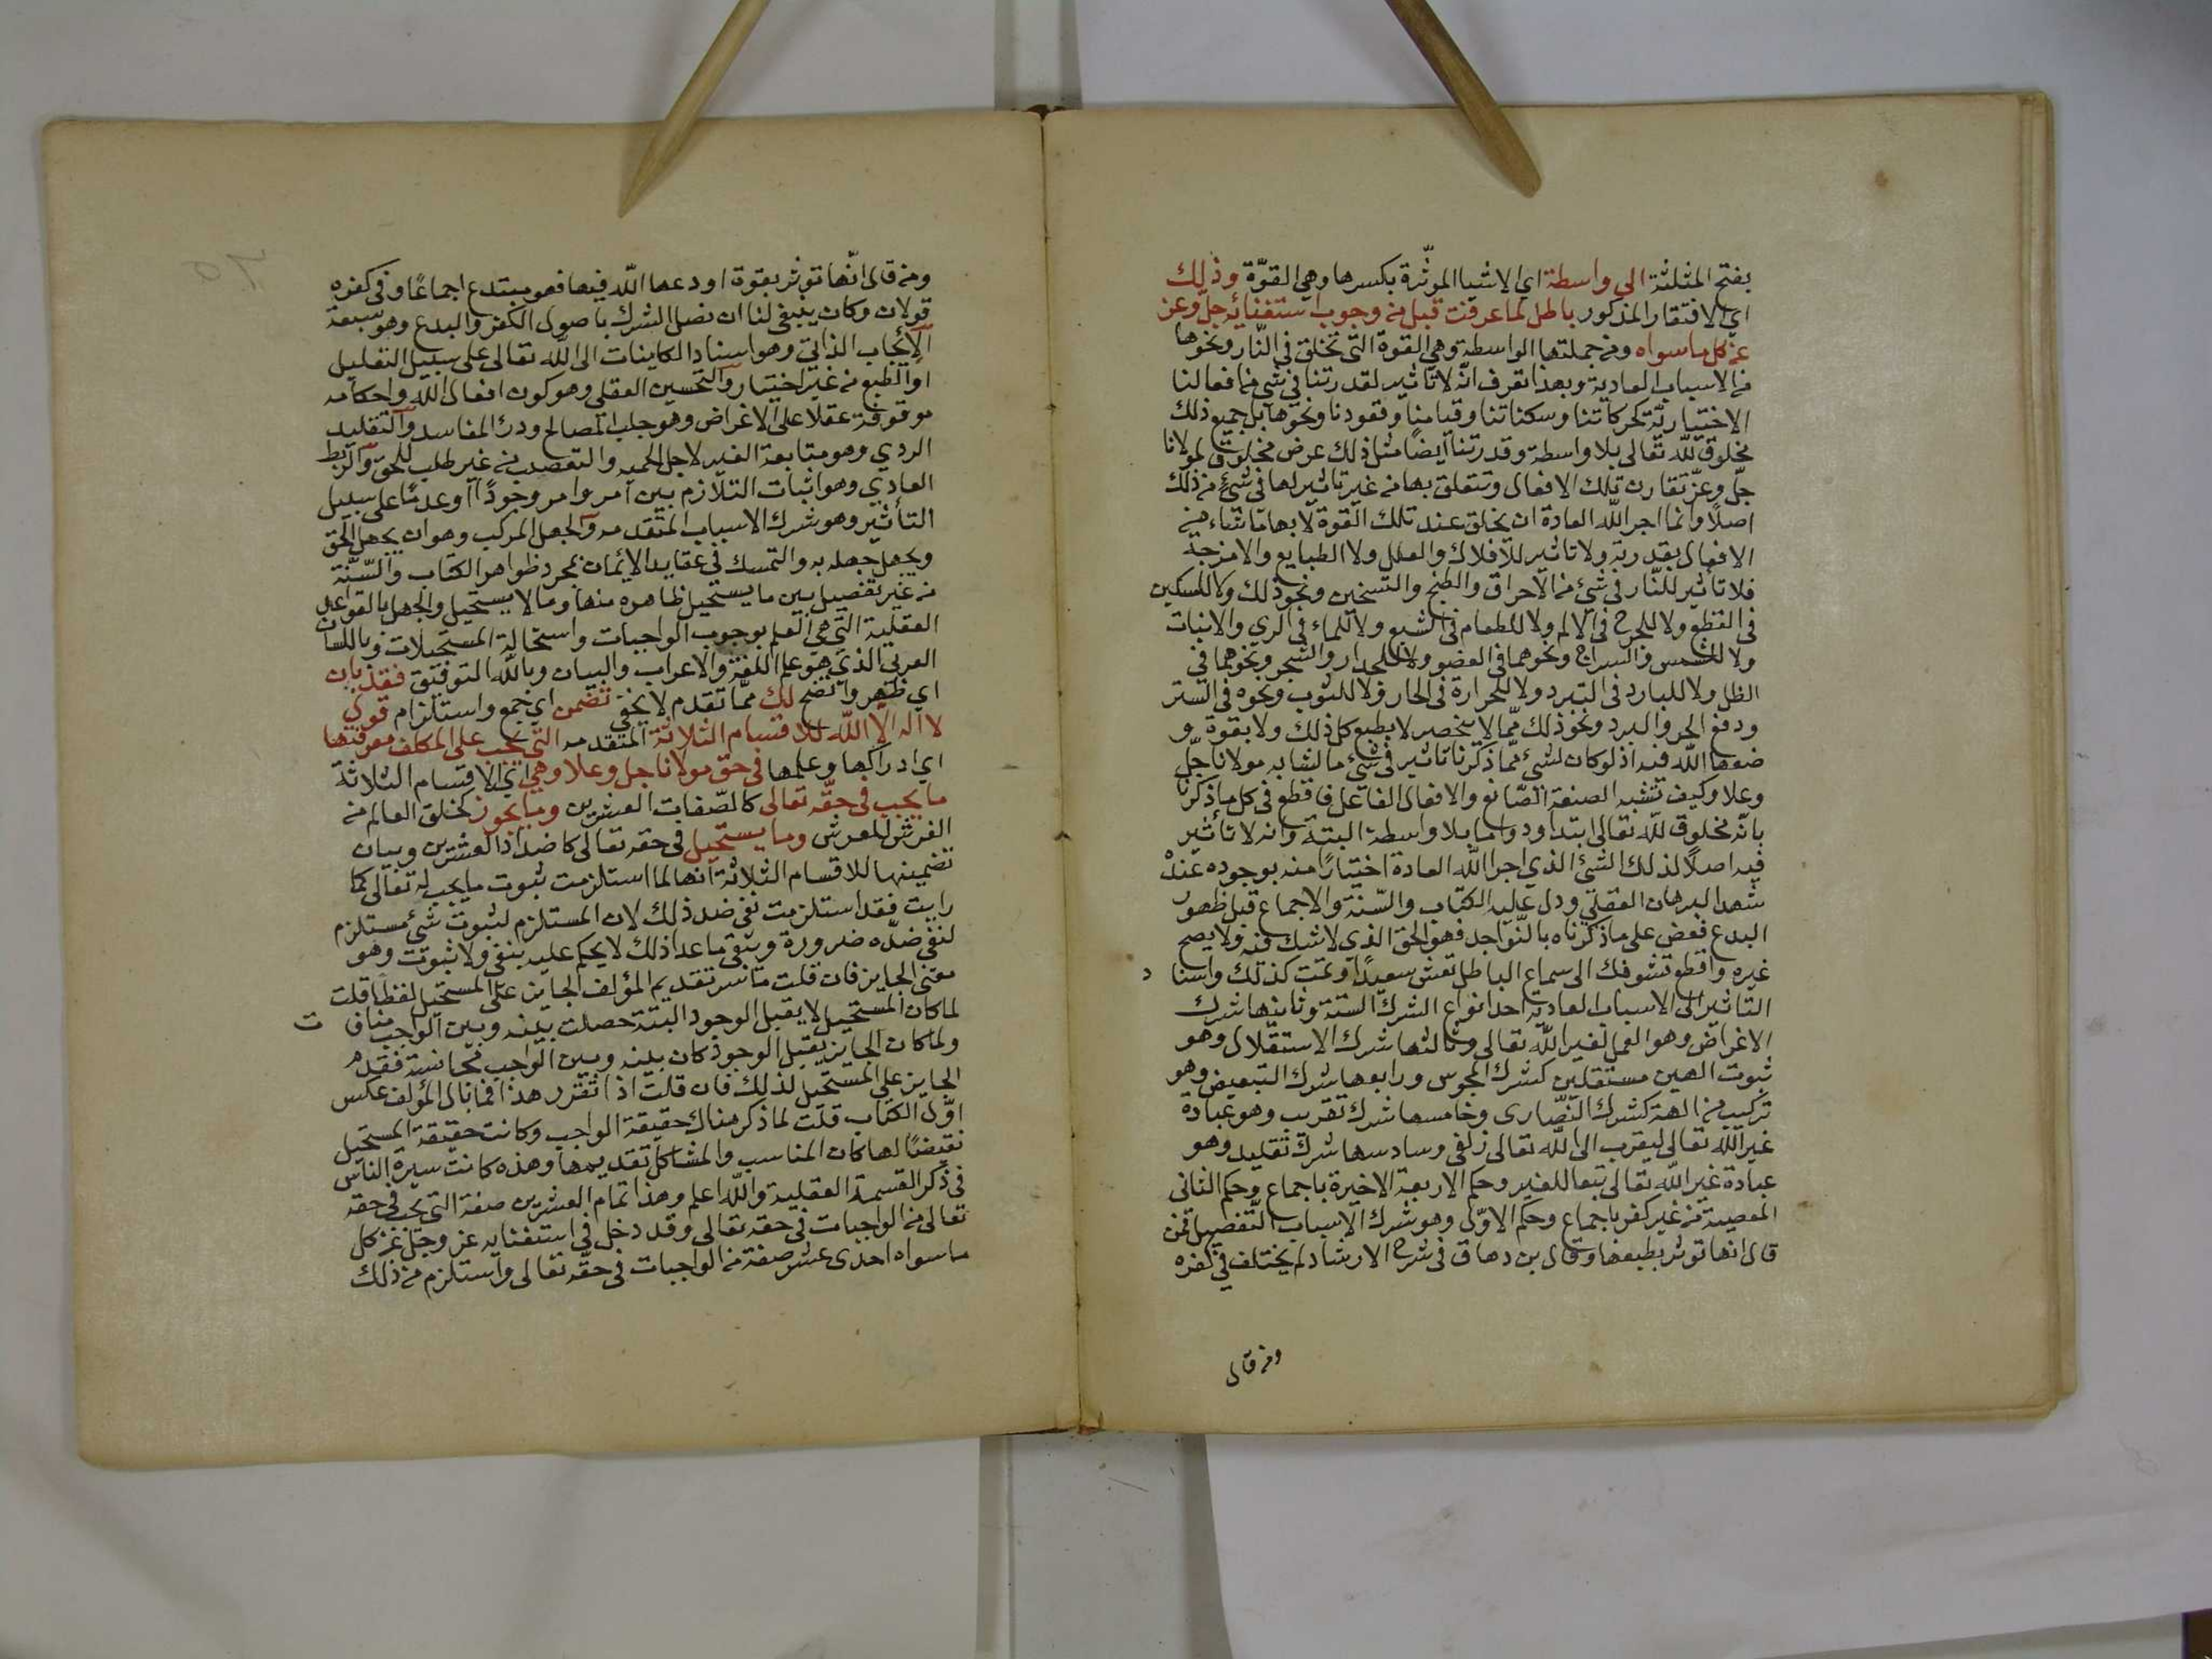 بفتح المثلثة الى واسطة اي الاشيا الموثّرة بكسرها وهي القوّة وذلك
اي الافتقار المذكور باطل لما عرفت قبل من وجوب استغنايه جلّ وعز
عن كل ما سواه ومن جملتها الواسطة وهي القوة التى تخلق فى النّار ونحوها
من الاسباب العادية وبهذا تعرف انّه لا تاثير لقدرتنا في شي من افعالنا
الاختياريّة كحركاتنا وسكناتنا وقيامنا وقعودنا ونحوها بل جميع ذلك
مخلوق للّه تعالى بلا واسطة وقدرتنا ايضا مثل ذلك عرض مخلوق لمولانا
جلّ وعزّ تقارن تلك الافعال وتتعلق بها من غير تاثير لها في شئ من ذلك
اصلًا وانما اجر اللّه العادة ان يخلق عند تلك القوة لا بها ما شاء من
الافعال بقدرته ولا تاثير للافلاك والعلل ولا الطبايع والامزجة
فلا تأثير للنّار فى شئ من الاحراق والطبخ والتسخين ونحو ذلك ولا للسكين
فى القطع ولا للجرح فى الالم ولا للطعام فى الشبع ولا للماء فى الري والانبات
ولا للشمس والسراج ونحوهما فى الضو ولا للجدار والشجر ونحوهما في
الظل ولا للبارد فى التبرد ولا للحرارة فى الحار ولا للثوب ونحوه فى الستر
ودفع الحر والبرد ونحو ذلك ممّا لا ينحصر لا بطبع كل ذلك ولا بقوة و
ضعها اللّه فيه اذ لو كان لشئ ممّا ذكرنا تاثير فى شئ ما لشابه مولانا جلّ
وعلا وكيف تشبه الصنعة الصّانع والافعال الفاعل فاقطع فى كل ما ذكرنا
بانّه مخلوق للّه تعالى ابتدا ودواما بلا واسطة البتة وانه لا تأثير
فيه اصلًا لذلك الشئ الذي اجر اللّه العادة اختيارًا منه بوجوده عنده
شهد البرهان العقلي ودل عليه الكتاب والسّنة والاجماع قبل ظهور
البدع فعض على ما ذكرناه بالنّواجد فهو الحق الذي لا شك فيه ولا يصح
غيره واقطع تشوفك الى سماع الباطل تعش سعيدًا وتمت كذلك واسنا د
التاثير الى الاسباب العادية احد انواع الشرك الستة وثانيها شرك
الاغراض وهو العمل لغير اللّه تعالى وثالثها شرك الاستقلال وهو
ثبوت الهين مستقلين كشرك المجوس ورابعها شرك التبعيض وهو
تركيب من الهة كشرك النّصارى وخامسها شرك تقريب وهو عبادة
غير اللّه تعالى ليقرب الى اللّه تعالى زلفى وسادسها شرك تقليد وهو
عبادة غير اللّه تعالى تبعا للغير وحكم الاربعة الاخيرة باجماع وحكم الثانى
المعصية من غير كفر باجماع وحكم الاوّل وهو شرك الاسباب التّفصيل فمن
قال انها توثر بطبعها وقال بن دهاق فى شرح الارشاد لم يختلف في كفره
ومن قال
ومن قال انّها توثر بقوة اودعها اللّه فيها فهو مبتدع اجماعًا وفى كفره
قولان وكان ينبغى لنا ان نصل الشرك باصول الكفر والبدع وهو سبعة
الايجاب الذاتي وهو اسناد الكاينات الى اللّه تعالى على سبيل التعليل
او الطبع من غير اختيار والتحسين العقلى وهو كون افعال اللّه واحكامه
موقوفة عقلًا على الاغراض وهو جلب المصالح ودرك المفاسد والتقليد
الردي وهو متابعة الغير لاجل الحميه والتعصب من غير طلب للحق والربط
العادي وهو اثبات التلازم بين امر وامر وجودًا او عدمًا على سبيل
التأثير وهو شرك الاسباب المتقدمه والجهل المركب وهو ان يجهل الحق
ويجهل جهله به والتمسك فى عقايد الايمان بمجرد ظواهر الكتاب والسّنّة
من غير تفصيل بين ما يستحيل ظاهره منها وما لا يستحيل والجهل بالقواعد
العقلية التي هي العلم بوجوب الواجبات واستحالة المستحيلات وباللسان
العربي الذي هو علم اللغة والاعراب والبيان وباللّه التوفيق فقد بان
اي ظهر واتضح لك ممّا تقدم لا يخفي تضمن اي جمع واستلزام قول
لا اله الّا اللّه للاقسام الثلاثة المتقدمه التي يجب على المكلف معرفتها
اي ادراكها وعلمها فى حق مولانا جل وعلا وهي اي الاقسام الثلاثة
ما يجب فى حقّه تعالى كالصّفات العشرين وما يجوز كخلق العالم من
الفرش للعرش وما يستحيل فى حقه تعالى كاضداد العشرين وبيان
تضمينها للاقسام الثلاثة انها لما استلزمت ثبوت ما يجب له تعالى كما
رايت فقد استلزمت نفى ضد ذلك لان المستلزم لثبوت شئ مستلزم
لنفى ضدّه ضرورة وبقي ما عدا ذلك لا يحكم عليه بنفى ولا ثبوت وهو
معنى الجايز فان قلت ما سر تقديم المؤلف الجايز على المستحيل لفظا قلت
لما كان المستحيل لا يقبل الوجود البتة حصلت بينه وبين الواجب مناف ت
ولما كان الجايز يقبل الوجود كان بينه وبين الواجب مجانسة فقدم
الجايز على المستحيل لذلك فان قلت اذا تقرر هذا فما بال المؤلف عكس
اوّل الكتاب قلت لما ذكر هناك حقيقة الواجب وكانت حقيقة المستحيل
نقيضًا لها كان المناسب والمشاكل تقديمها وهذه كانت سيرة الناس
فى ذكر القسمة العقلية واللّه اعلم وهذا تمام العشرين صفة التى يجب في حقه
تعالى من الواجبات في حقه تعالى وقد دخل في استغنايه عز وجلّ عن كل
ما سواه احدى عشر صفة من الواجبات فى حقّه تعالى واستلزم من ذلك